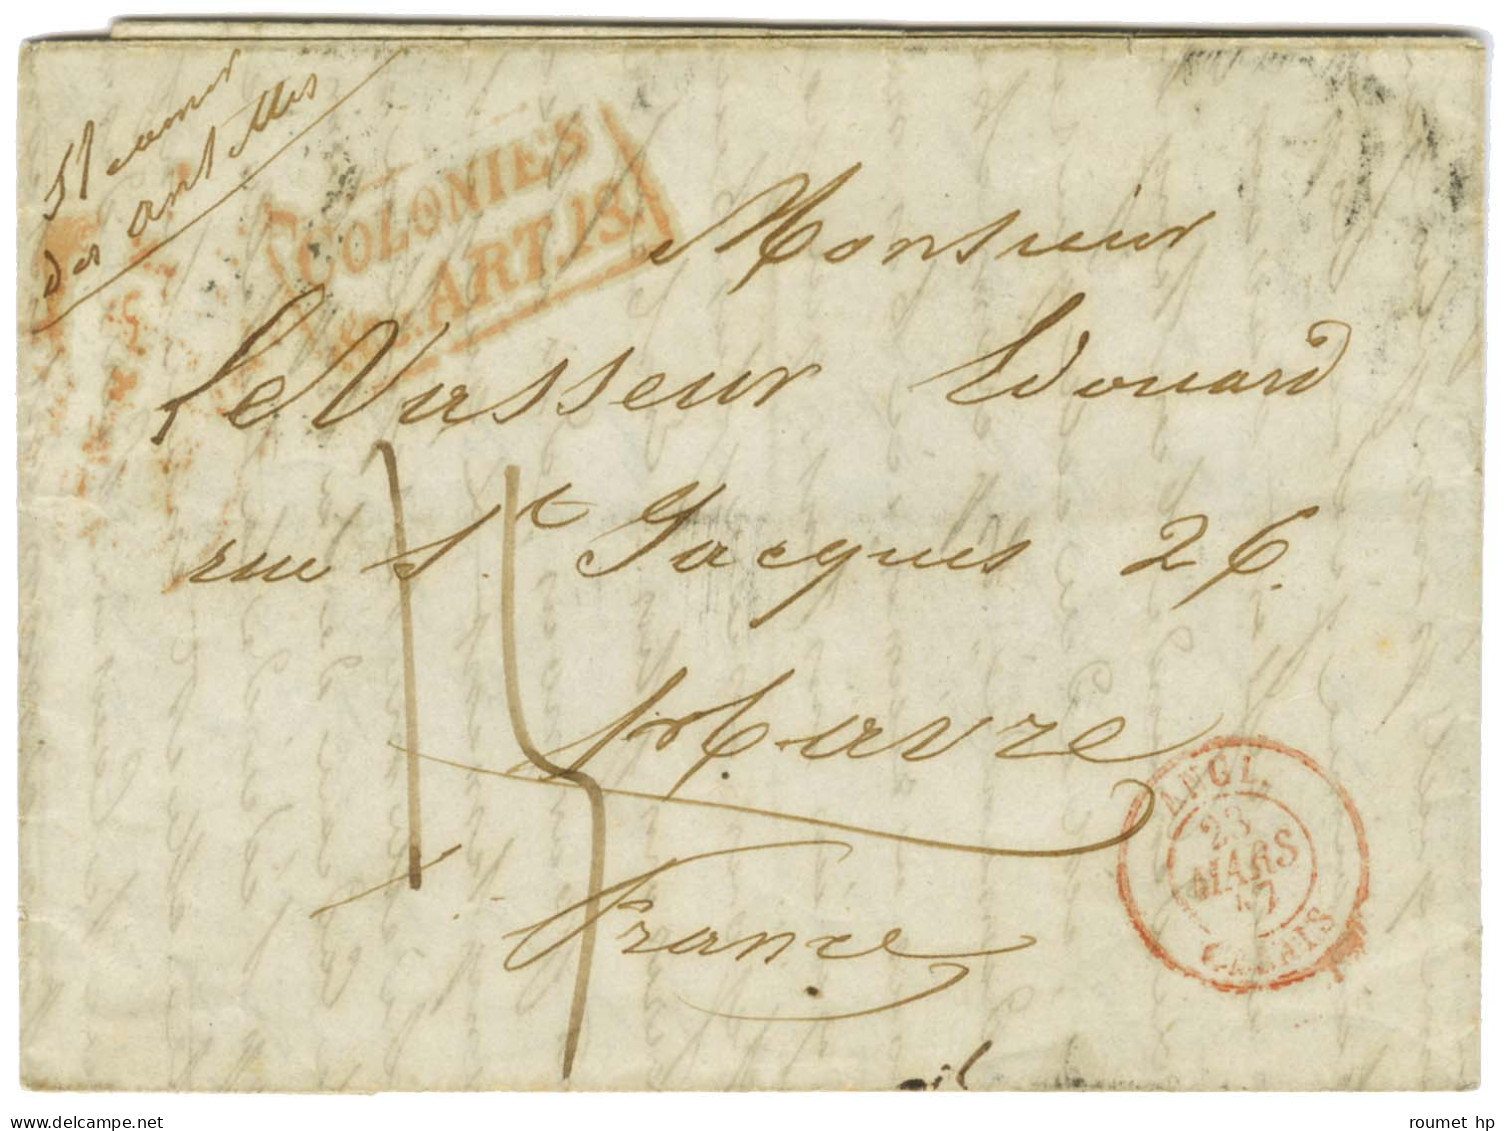 St eamer
des antilles
COLONIES
&c. ART. 18.
Monsieur
Le Vasseur Edouard
rue St Jacques 26.
Havre
France
15
ANGL.
23
MARS
47
CALAIS
delcampe.net
roumet hp